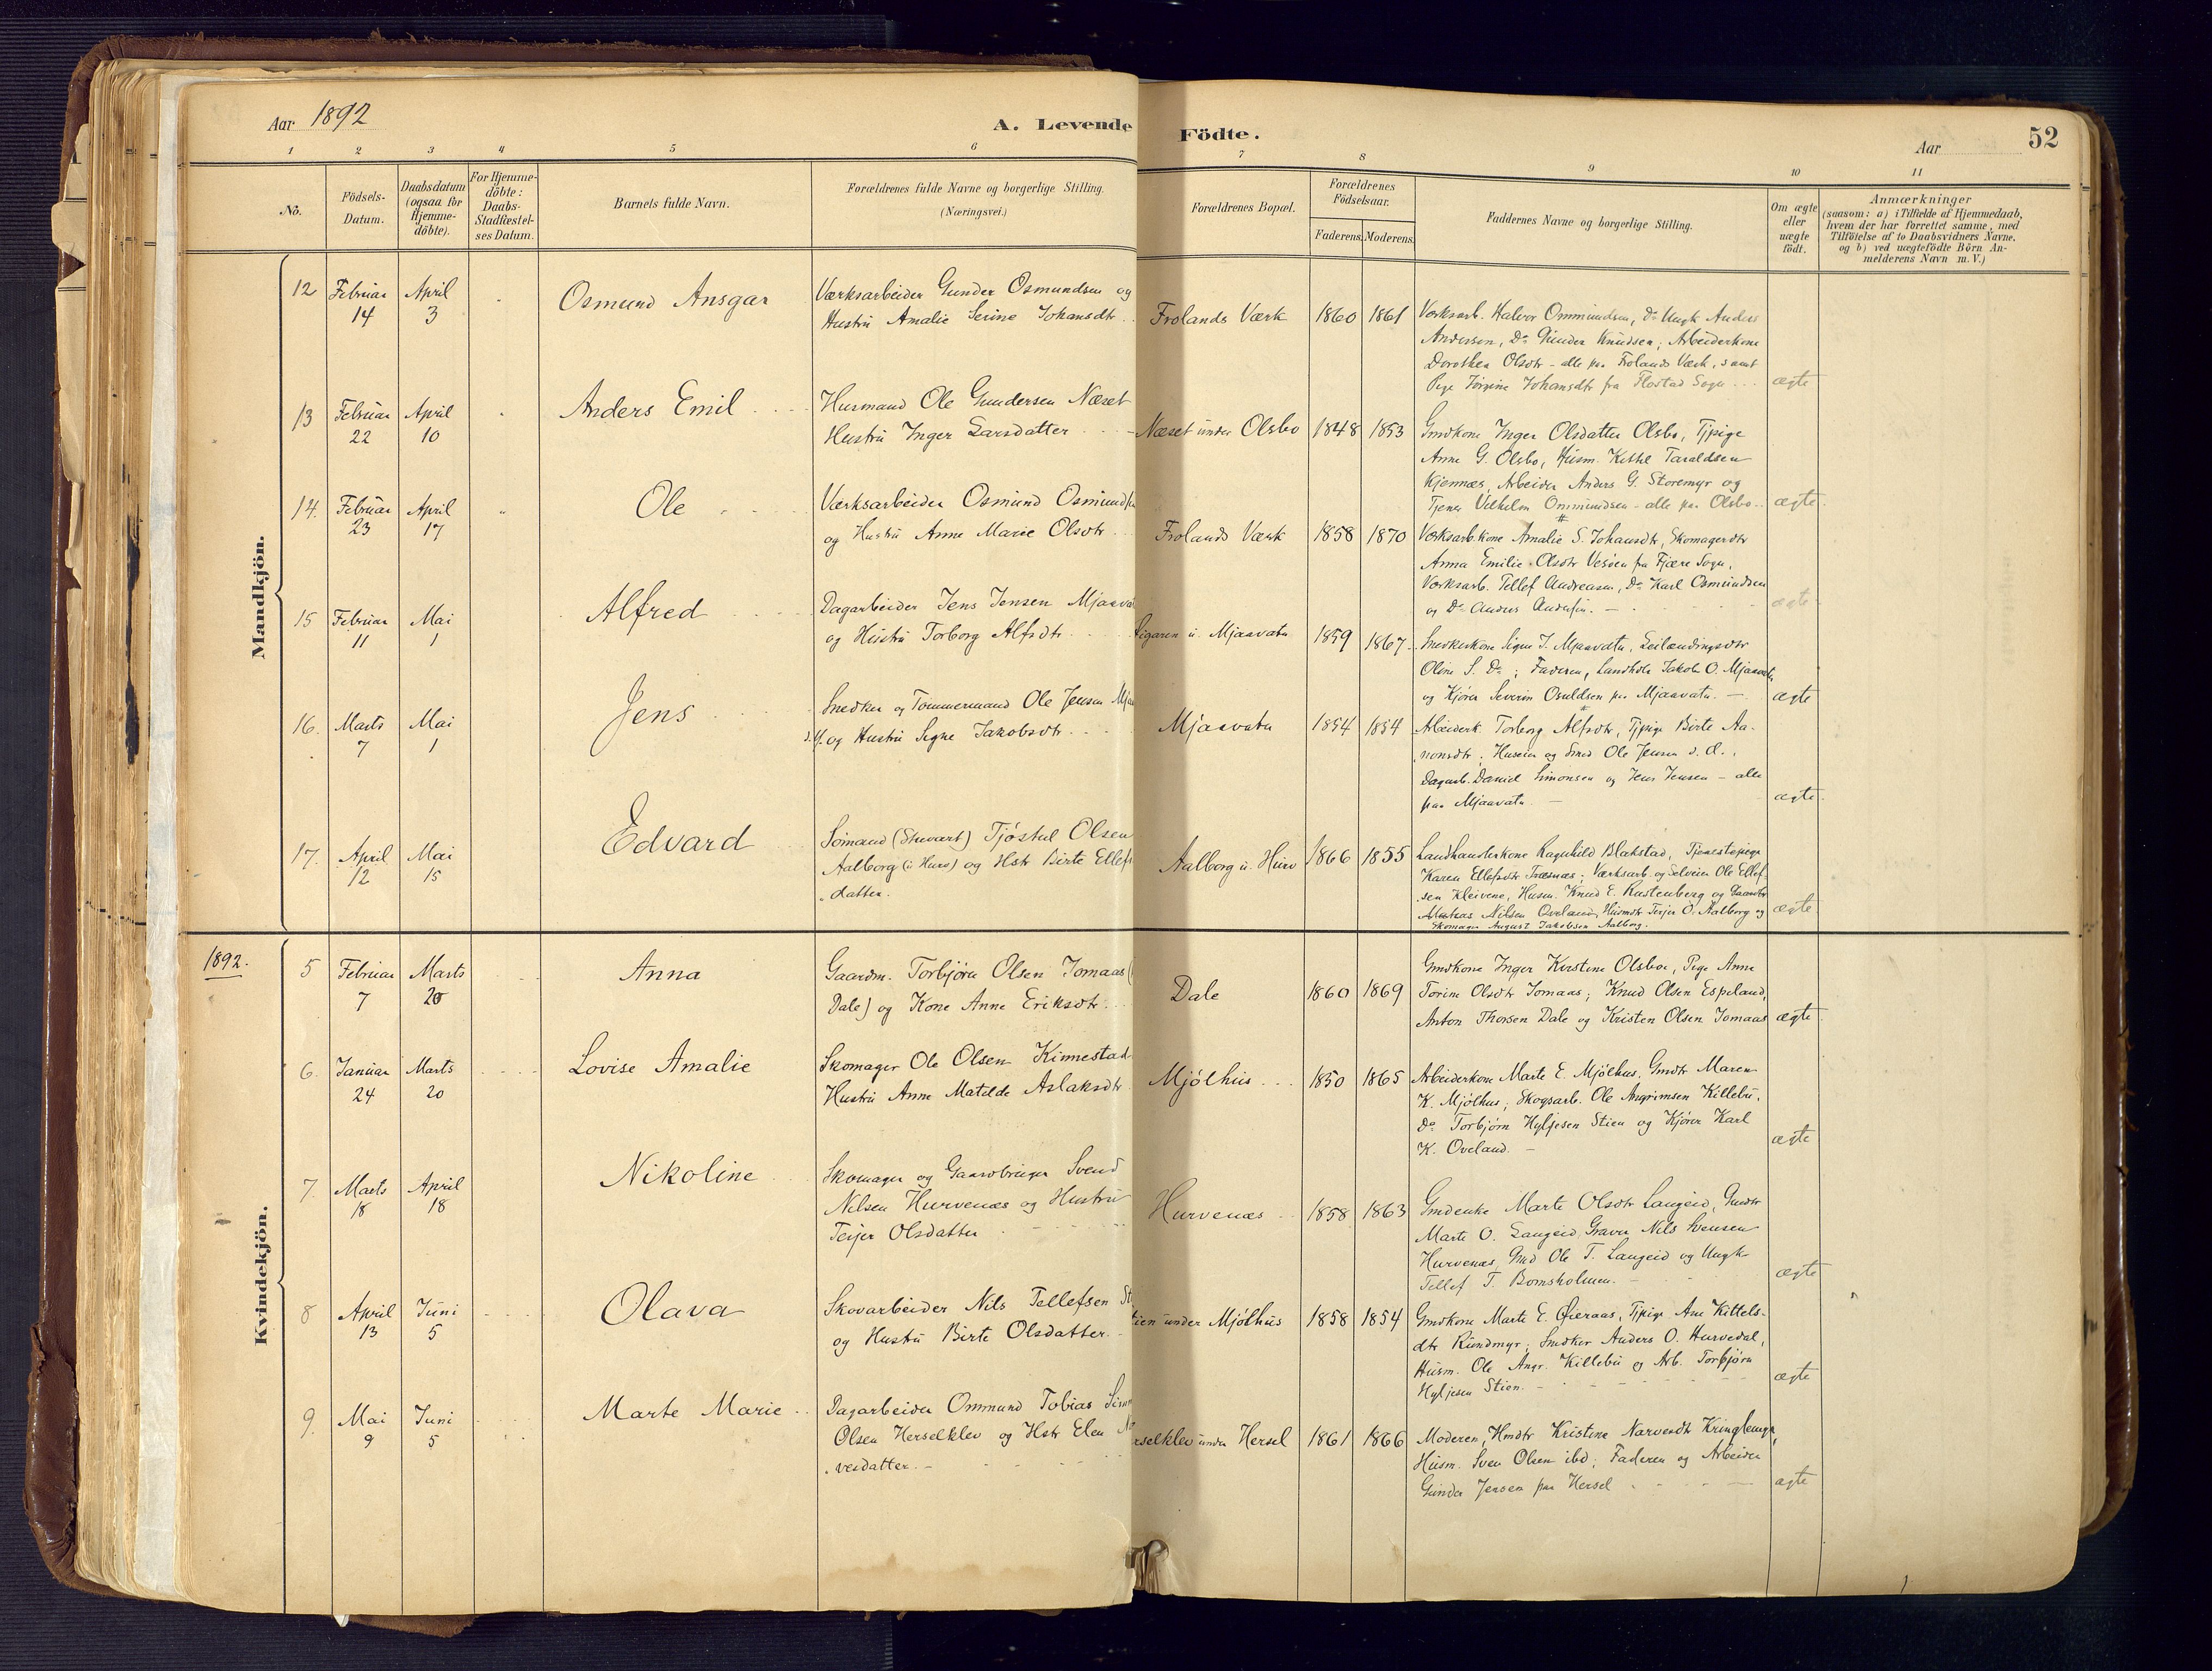 Aar 1892
A. Levende Födte.
Aar
52
1 2 3 4 5 6 7 8 9 10 11
No.
Födsels-
Datum.
Daabsdatum
(ogsaa for
Hjemme-
döbte).
For Hjemme-
döbte:
Daabs-
Stadfæstel-
ses Datum.
Barnets fulde Navn.
Forældrenes fulde Navne og borgerlige Stilling.
(Næringsvei.)
Forældrenes Bopæl.
Forældrenes
Födselsaar.
Faderens. Moderens.
Faddernes Navne og borgerlige Stilling.
Om ægte
eller
uægte
födt.
Anmærkninger
(saasom: a) i Tilfælde af Hjemmedaab,
hvem der har forrettet samme, med
Tilföielse af to Daabsvidners Navne,
og b) ved uægtefödte Börn An-
melderens Navn m. V.)
Mandkjön.
12
Februar
14
April
3
Osmund Ansgar
Værksarbeider Gunder Osmundsen og
Hustru Amalie Serine Johansdtr.
Frolands Værk
1860 1861
Værksarb. Halvor Ommundsen, Do Ungk Anders
Anderssen, Do Gunder Knudsen; Arbeiderkone
Dorothea Olsdtr - alle paa Frolands Værk, samt
Pige Jörgine Johansdtr fra Flostad Sogn
ægte
13
Februar
22
April
10
Anders Emil
Husmand Ole Gundersen Næset
Hustru Inger Larsdatter
Næset under Olsbo
1848 1853
Gmdkone Inger Olsdatter Olsbo, Tjpige
Anne G. Olsbo, Husm. Kittil Taraldsen
Kjennæs, Arbeider Anders G. Storemyr og
Tjener Vilhelm Ommundsen - alle paa Olsbo
ægte
14.
Februar
23
April
17
Ole
Værksarbeider Osmund Osmundsen
og Hustru Anne Marie Olsdtr
Frolands Værk
1858 1870
Værksarb.kone Amalie S. Johansdtr, Skomagerdtr
Anna Emilie Olsdtr Vesöen fra Fjære Sogn,
Værksarb. Tellef Andreasen, Do Karl Osmundsen
og Do Anders
ægte
15
Februar
11
Mai
1
Alfred
Dagarbeider Jens Jensen Mjaava
og Hustru Torborg Alfsdtr.
u. Mjaavatn
1859 1867.
Snedkerkone Signe J. Mjaavatn, Leilændingsdtr
Oline S. Do; Faderen, Landhdlr Jakob O. Mjaavatn
og Kjörer Severin Osuldsen paa Mjaavatn.
ægte
16.
Marts
7
Mai
1
Jens
Snedker og Tømmermand Ole Jensen Mjaa
og Hustru Signe Jakobsdtr.
Mjaavatn
1854 1854
Arbeiderk. Torborg Alfsdtr, Tjpige Birte Aa-
nonsdtr; Huseier og Smed Ole Jensen s. d.,
Dagarb. Daniel Simonsen og Jens Jensen - alle
paa Mjaavatn.
ægte
17.
April
12
Mai
15
Edvard
Sömand (Stuvart) Tjöstul Olsen
Aalborg (u. Hurv) og Hstr Birte Ellefs
datter.
Aalborg u. Hurv
1866 1855
Landhandlerkone Ragnhild Blakstad, Tjenestepige
Karen Ellefsdtr Træsnæs; Værksarb. og Selveier Ole Ellef-
sen Kleivene, Husm. Knud E. Rustenberg og Gaardbr
Nilsen Oveland, Husmdtr Terjer O. Aalborg og
Skomager August Jakobsen Aalborg.
ægte
1892.
Kvindekjön.
5
Februar
7
Marts
20
Anna
Gaardm. Torbjörn Olsen Jomaas (
Dale) og Kone Anne Eriksdtr.
Dale
1860 1869
Gmdkone Inger Kirstine Olsboe, Pige Anne
Torine Olsdtr Jomaas; Knud Olsen Espeland,
Anton Thorsen Dale og Kristen Olsen Jomaas
ægte
6.
Januar
24
Marts
20
Lovise Amalie
Skomager Ole Olsen Kinnestad
Hustru Anne Matilde Aslaksdtr
Mjölhus
1850 1865
Arbeiderkone Marte E. Mjölhus, Gmdtr Maren
K. Mjölhus; Skogsarb. Ole Angrimsen Killebu,
Do Torbjörn Hyljesen Stien og Kjörer Karl
K. Oveland.
ægte
7.
Marts
18
April
18
Nikoline
Skomager og Gaardbruger Svend
Nilsen Hurvenæs og Hustru
Terjer Olsdatter
Hurvenæs
1858 1863
Gmdenke Marte Olsdtr Langeid, Gmdtr
Marte O. Langeid, Graver Nils Svensen
Hurvenæs, Gmd Ole T. Langeid og Ungk
Tellef T. Bomsholmen.
ægte
8
April
13
Juni
5
Olava
Skovarbeider Nils Tellefsen St
og Hustru Birte Olsdatter.
tien under Mjölhus
1858 1854
Gmdkone Marte E. Øieraas, Tjpige Ane Kittels-
dtr Rundmyr; Snedker Anders O. Hurvedal,
Husm. Ole Angr. Killebu og Arb. Torbjörn
Hyljesen Stien.
ægte
9.
Mai
9
Juni
5
Marte Marie
Dagarbeider Ommund Tobias
Olsen Herselklev og Hstr Elen
vesdatter.
rselklev under Hersel
1861 1866
Moderen, Hmdtr Kristine Narvesdtr Kringlemyr,
Husm. Sven Olsen ibd; Faderen og Arbeider
Gunder Jensen paa Hersel
ægte